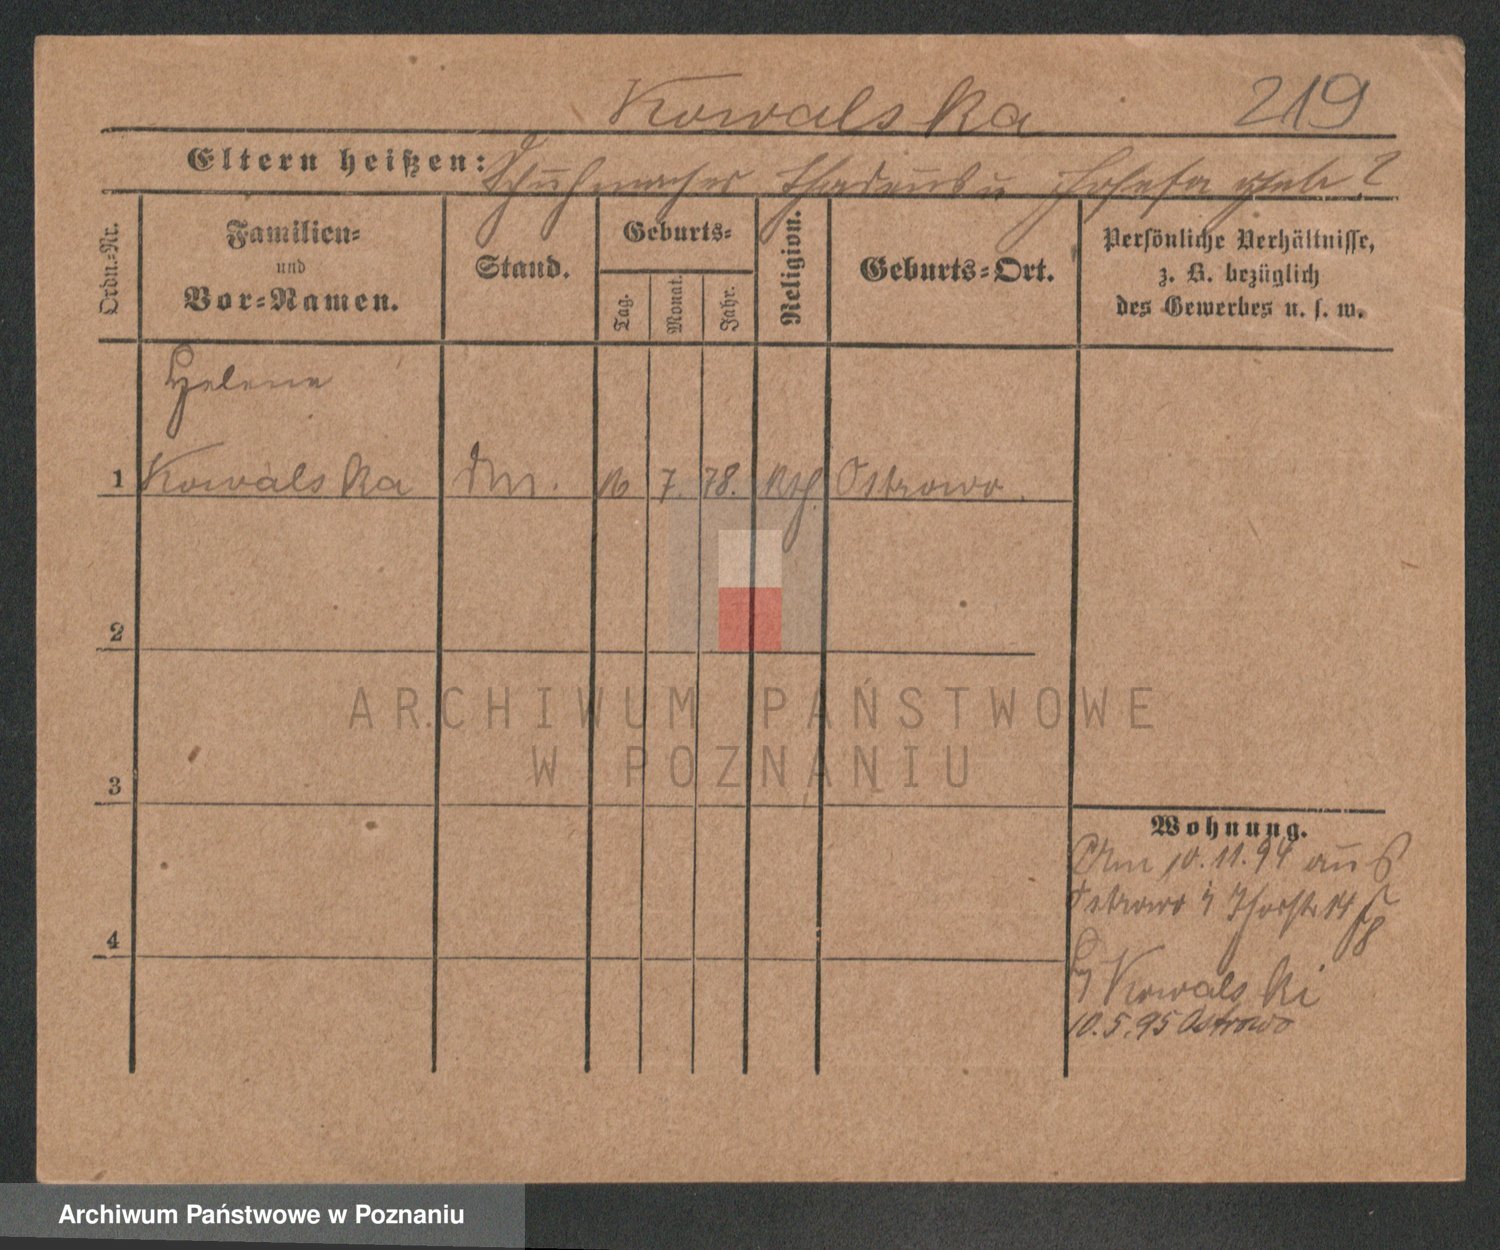 Kowalska 219
Eltern heißen: Schuhmacher Thadeus u Josefa geb ?
Ordn.-Nr.
Familien-
und
Vor-Namen.
Stand.
Geburts-
Tag.
Monat.
Jahr.
Religion.
Geburts-Ort.
Persönliche Verhältnisse,
z. B. bezüglich
des Gewerbes u. s. w.
Helene
1 Kowalska Dm. 16 7. 78. kth. Ostrowo.
2
3
4
Wohnung.
Am 10.11.94 aus
Ostrowo 14
Kowalski
10.5.95 Ostrowo
ARCHIWUM PAŃSTWOWE
W POZNANIU
Archiwum Państwowe w Poznaniu